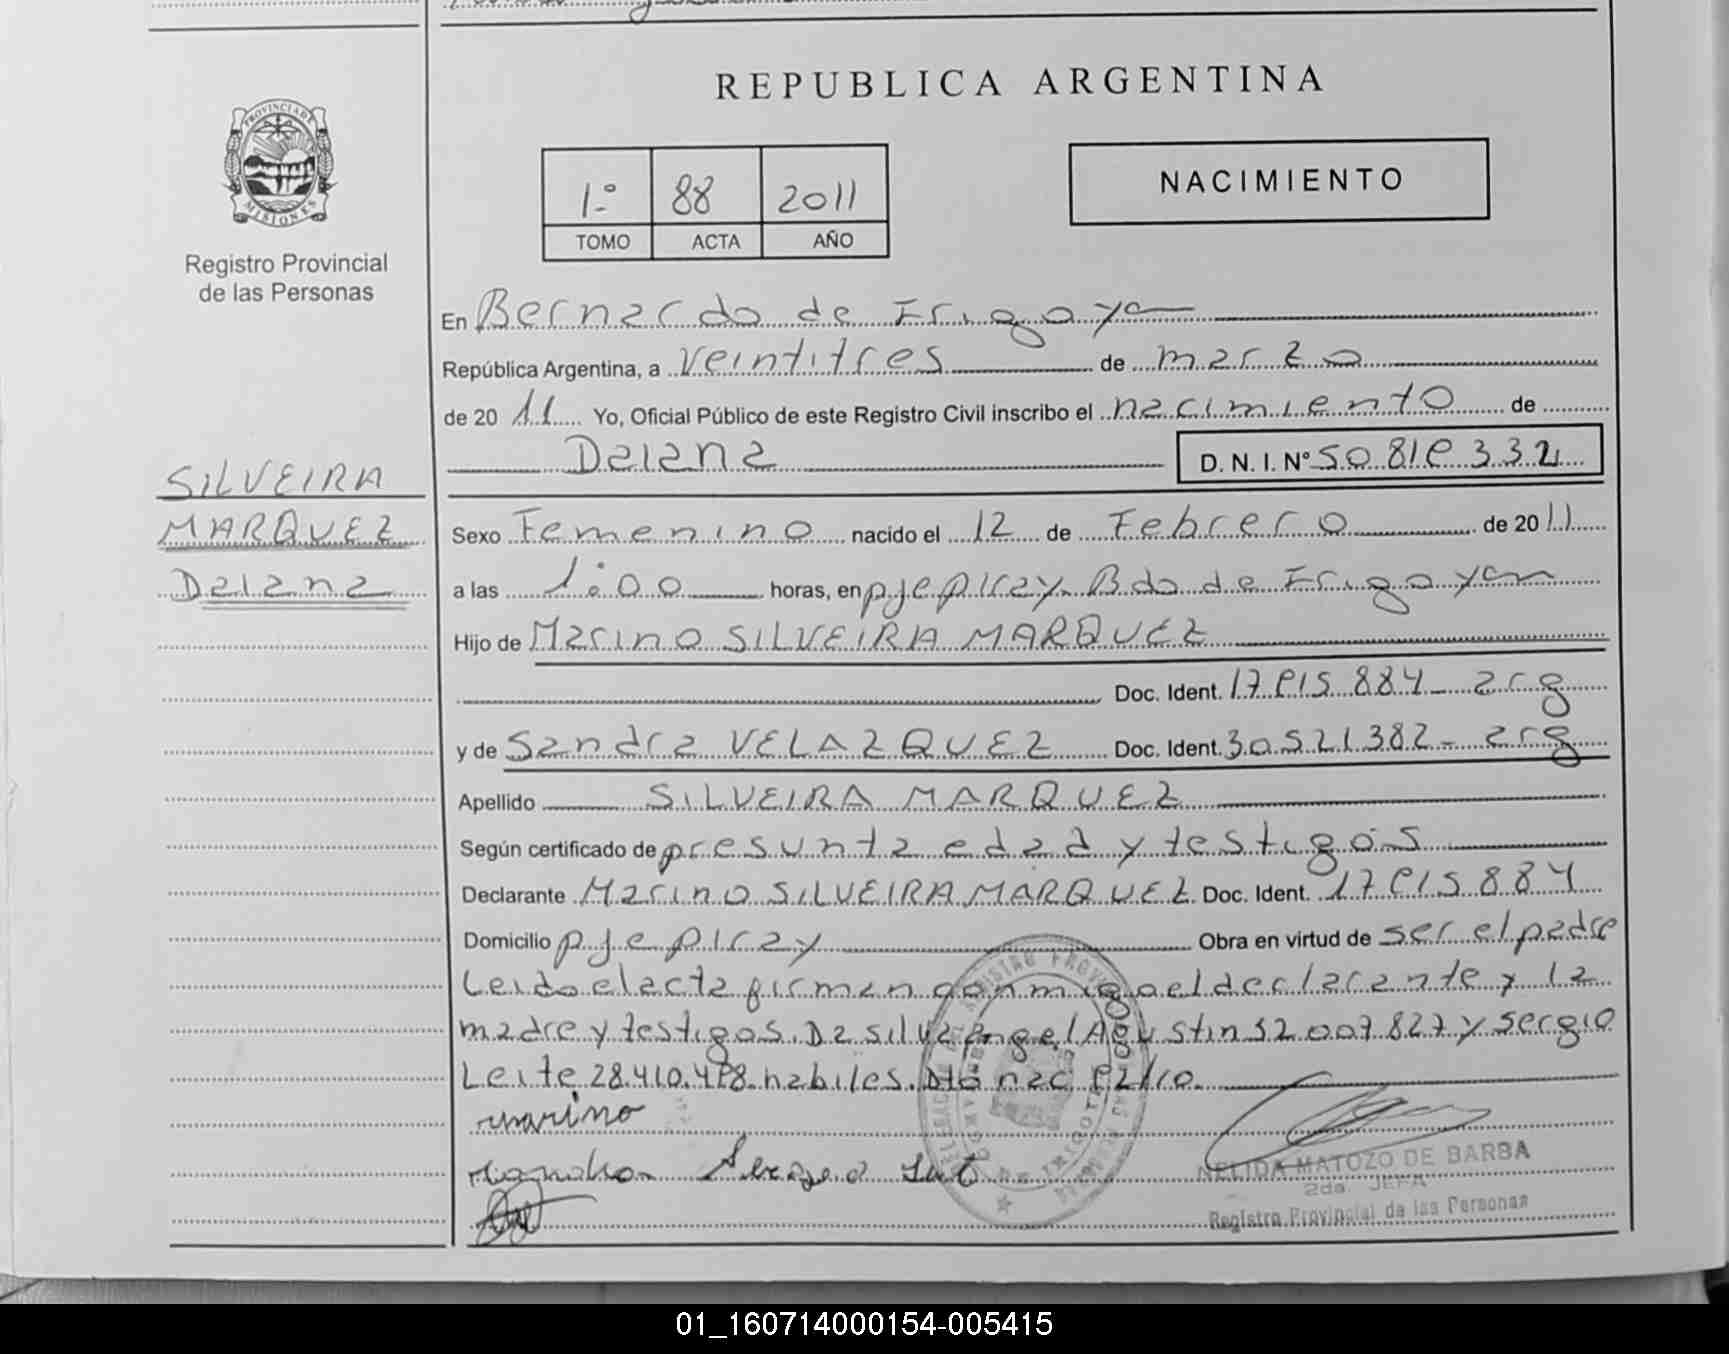 REPUBLICA ARGENTINA
PROVINCIA DE
MISIONES
Registro Provincial
de las Personas
1º 88 2011
TOMO ACTA AÑO
NACIMIENTO
En Bernardo de Irigoyen
República Argentina, a veintitres de marzo
de 20 11 Yo, Oficial Público de este Registro Civil inscribo el nacimiento de
Daiana D. N. I. Nº
SILVEIRA
MARQUEZ
Daiana
Sexo Femenino nacido el 12 de Febrero de 20 11
a las 1:00 horas, en pje piray Bdo de Irigoyen
Hijo de Marino SILVEIRA MARQUEZ
Doc. Ident. arg
y de Sandra VELAZQUEZ Doc. Ident. 30521382- arg
Apellido SILVEIRA MARQUEZ
Según certificado de presunta edad y testigos
Declarante Marino SILVEIRA MARQUEZ Doc. Ident.
Domicilio pje piray Obra en virtud de ser el padre
Leido el acta firman conmigo el declarante y la
madre y testigos. Da silva angel Agustin 32.007.827 y sergio
Leite habiles.
marino
NELIDA MATOZO DE BARBA
2da. JEFA
Registro Provincial de las Personas
01_160714000154-005415